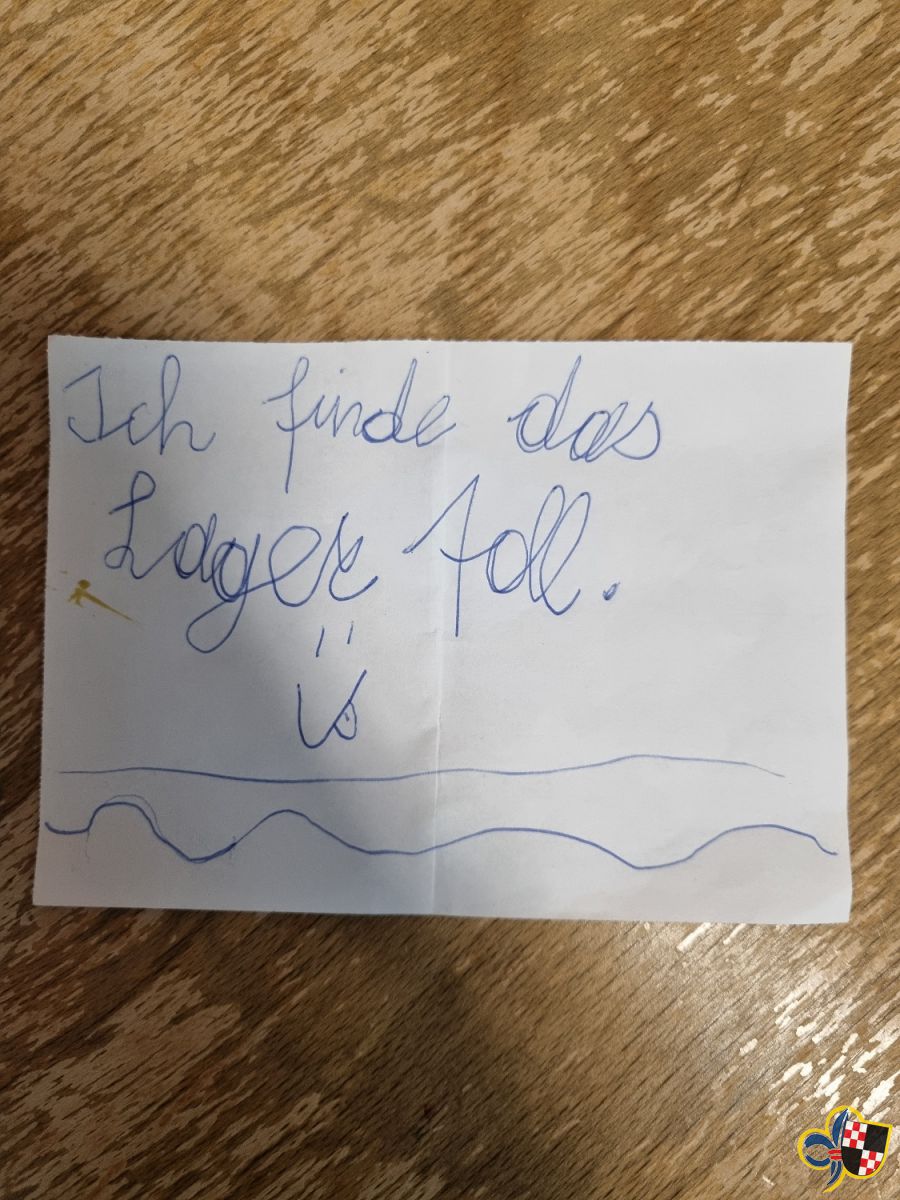 Ich finde das
Lager toll.